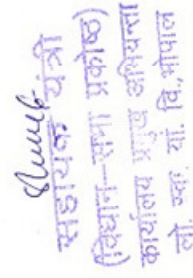 सहायक यंत्री
(विधान-सभा प्रकोष्ठ)
कार्यालय प्रमुख अभियन्ता
लो. स्वा. यां. वि. भोपाल